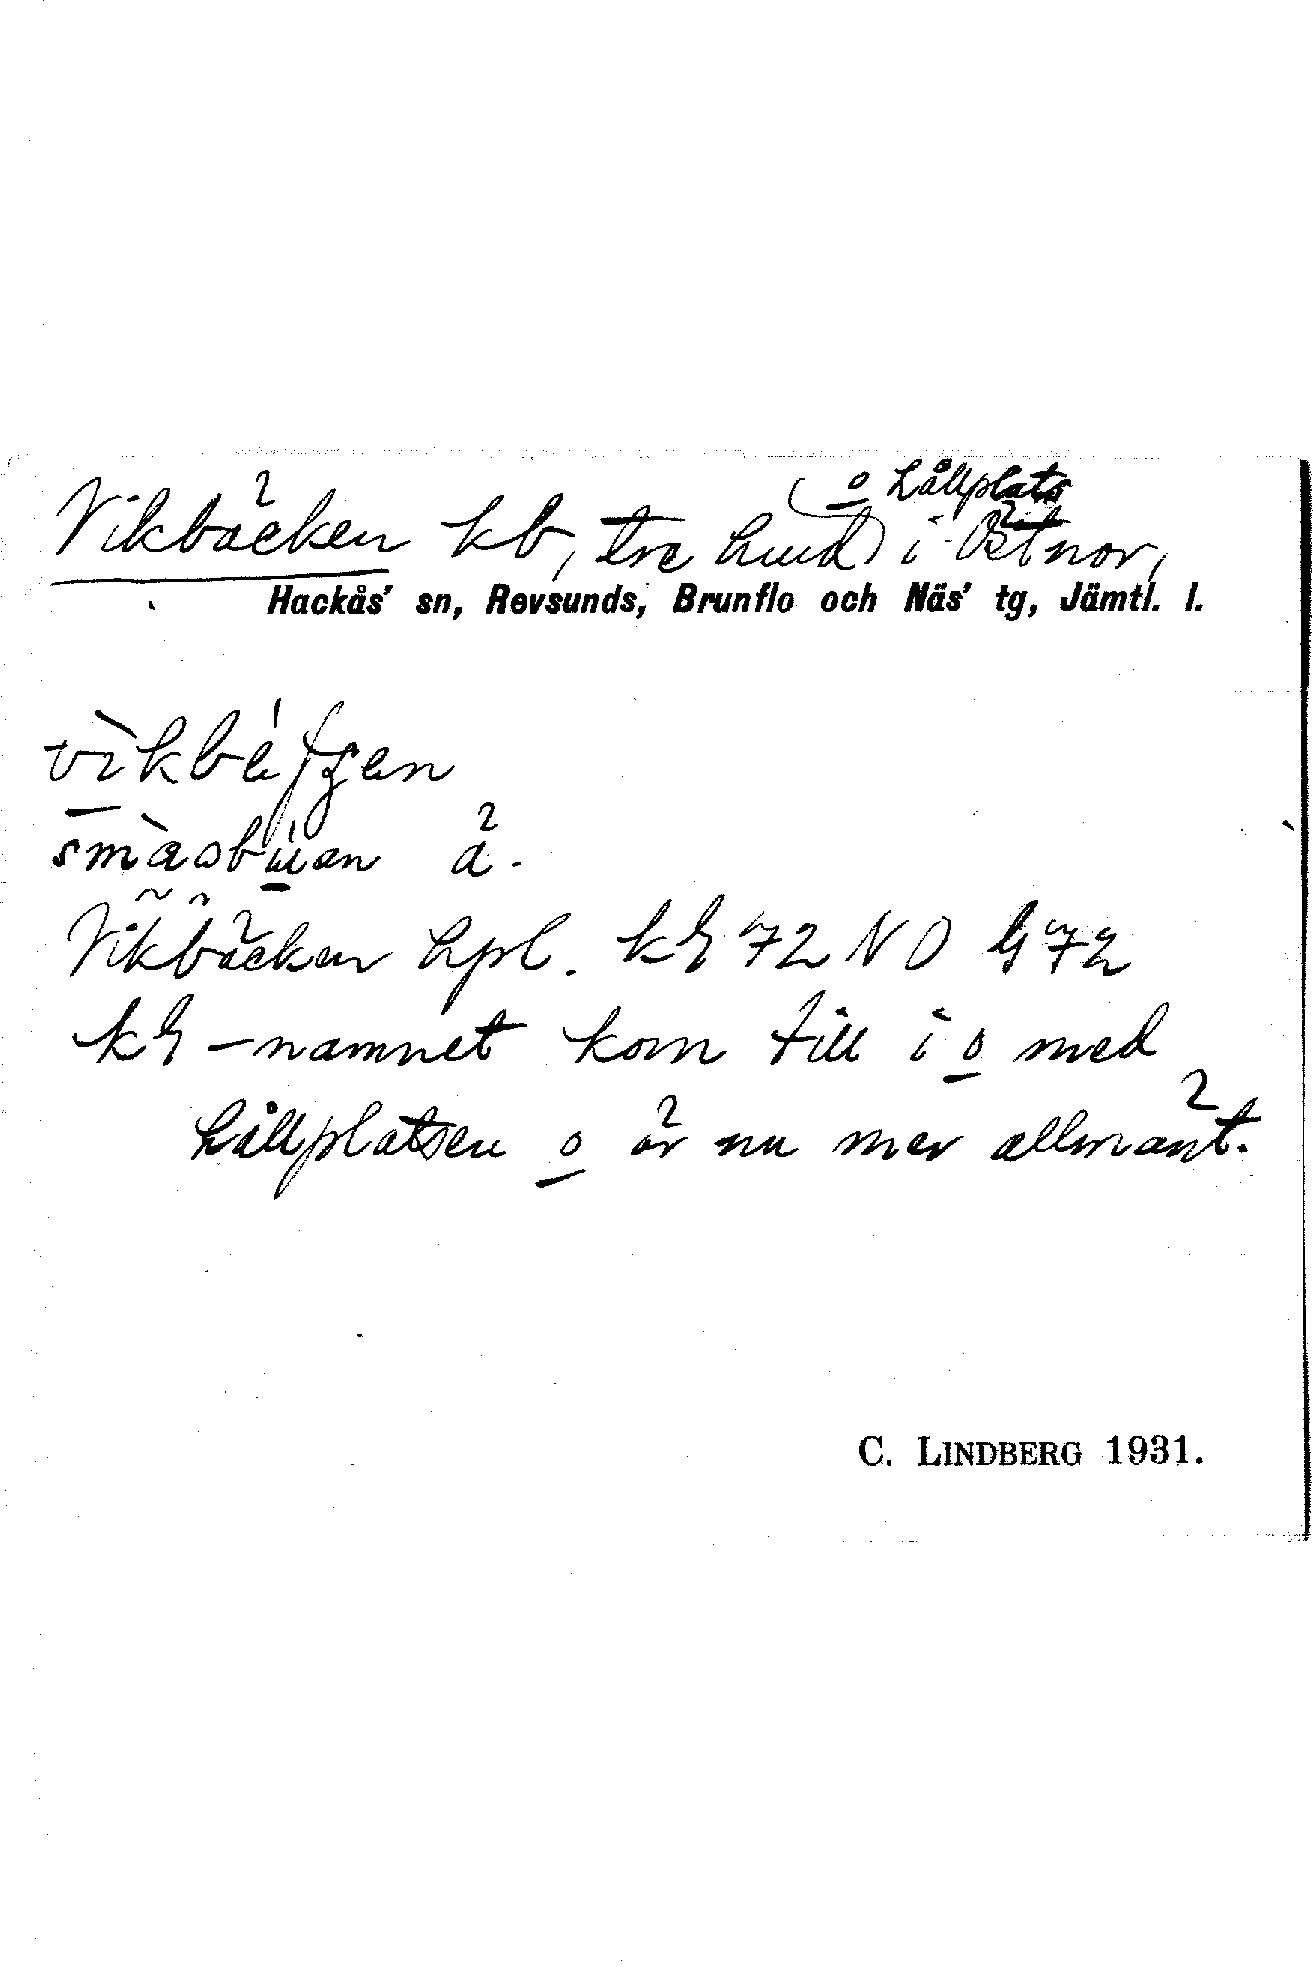 Vikbäcken kb, tre hmd (o hållplats) i Östnor,
Hackås' sn, Revsunds, Brunflo och Näs' tg, Jämtl. l.
småsbuan ä.
Vikbäcken hpl. kg 72 NO G 72
kg-namnet kom till i o med
hållplatsen o är nu mer allmänt.
C. LINDBERG 1931.